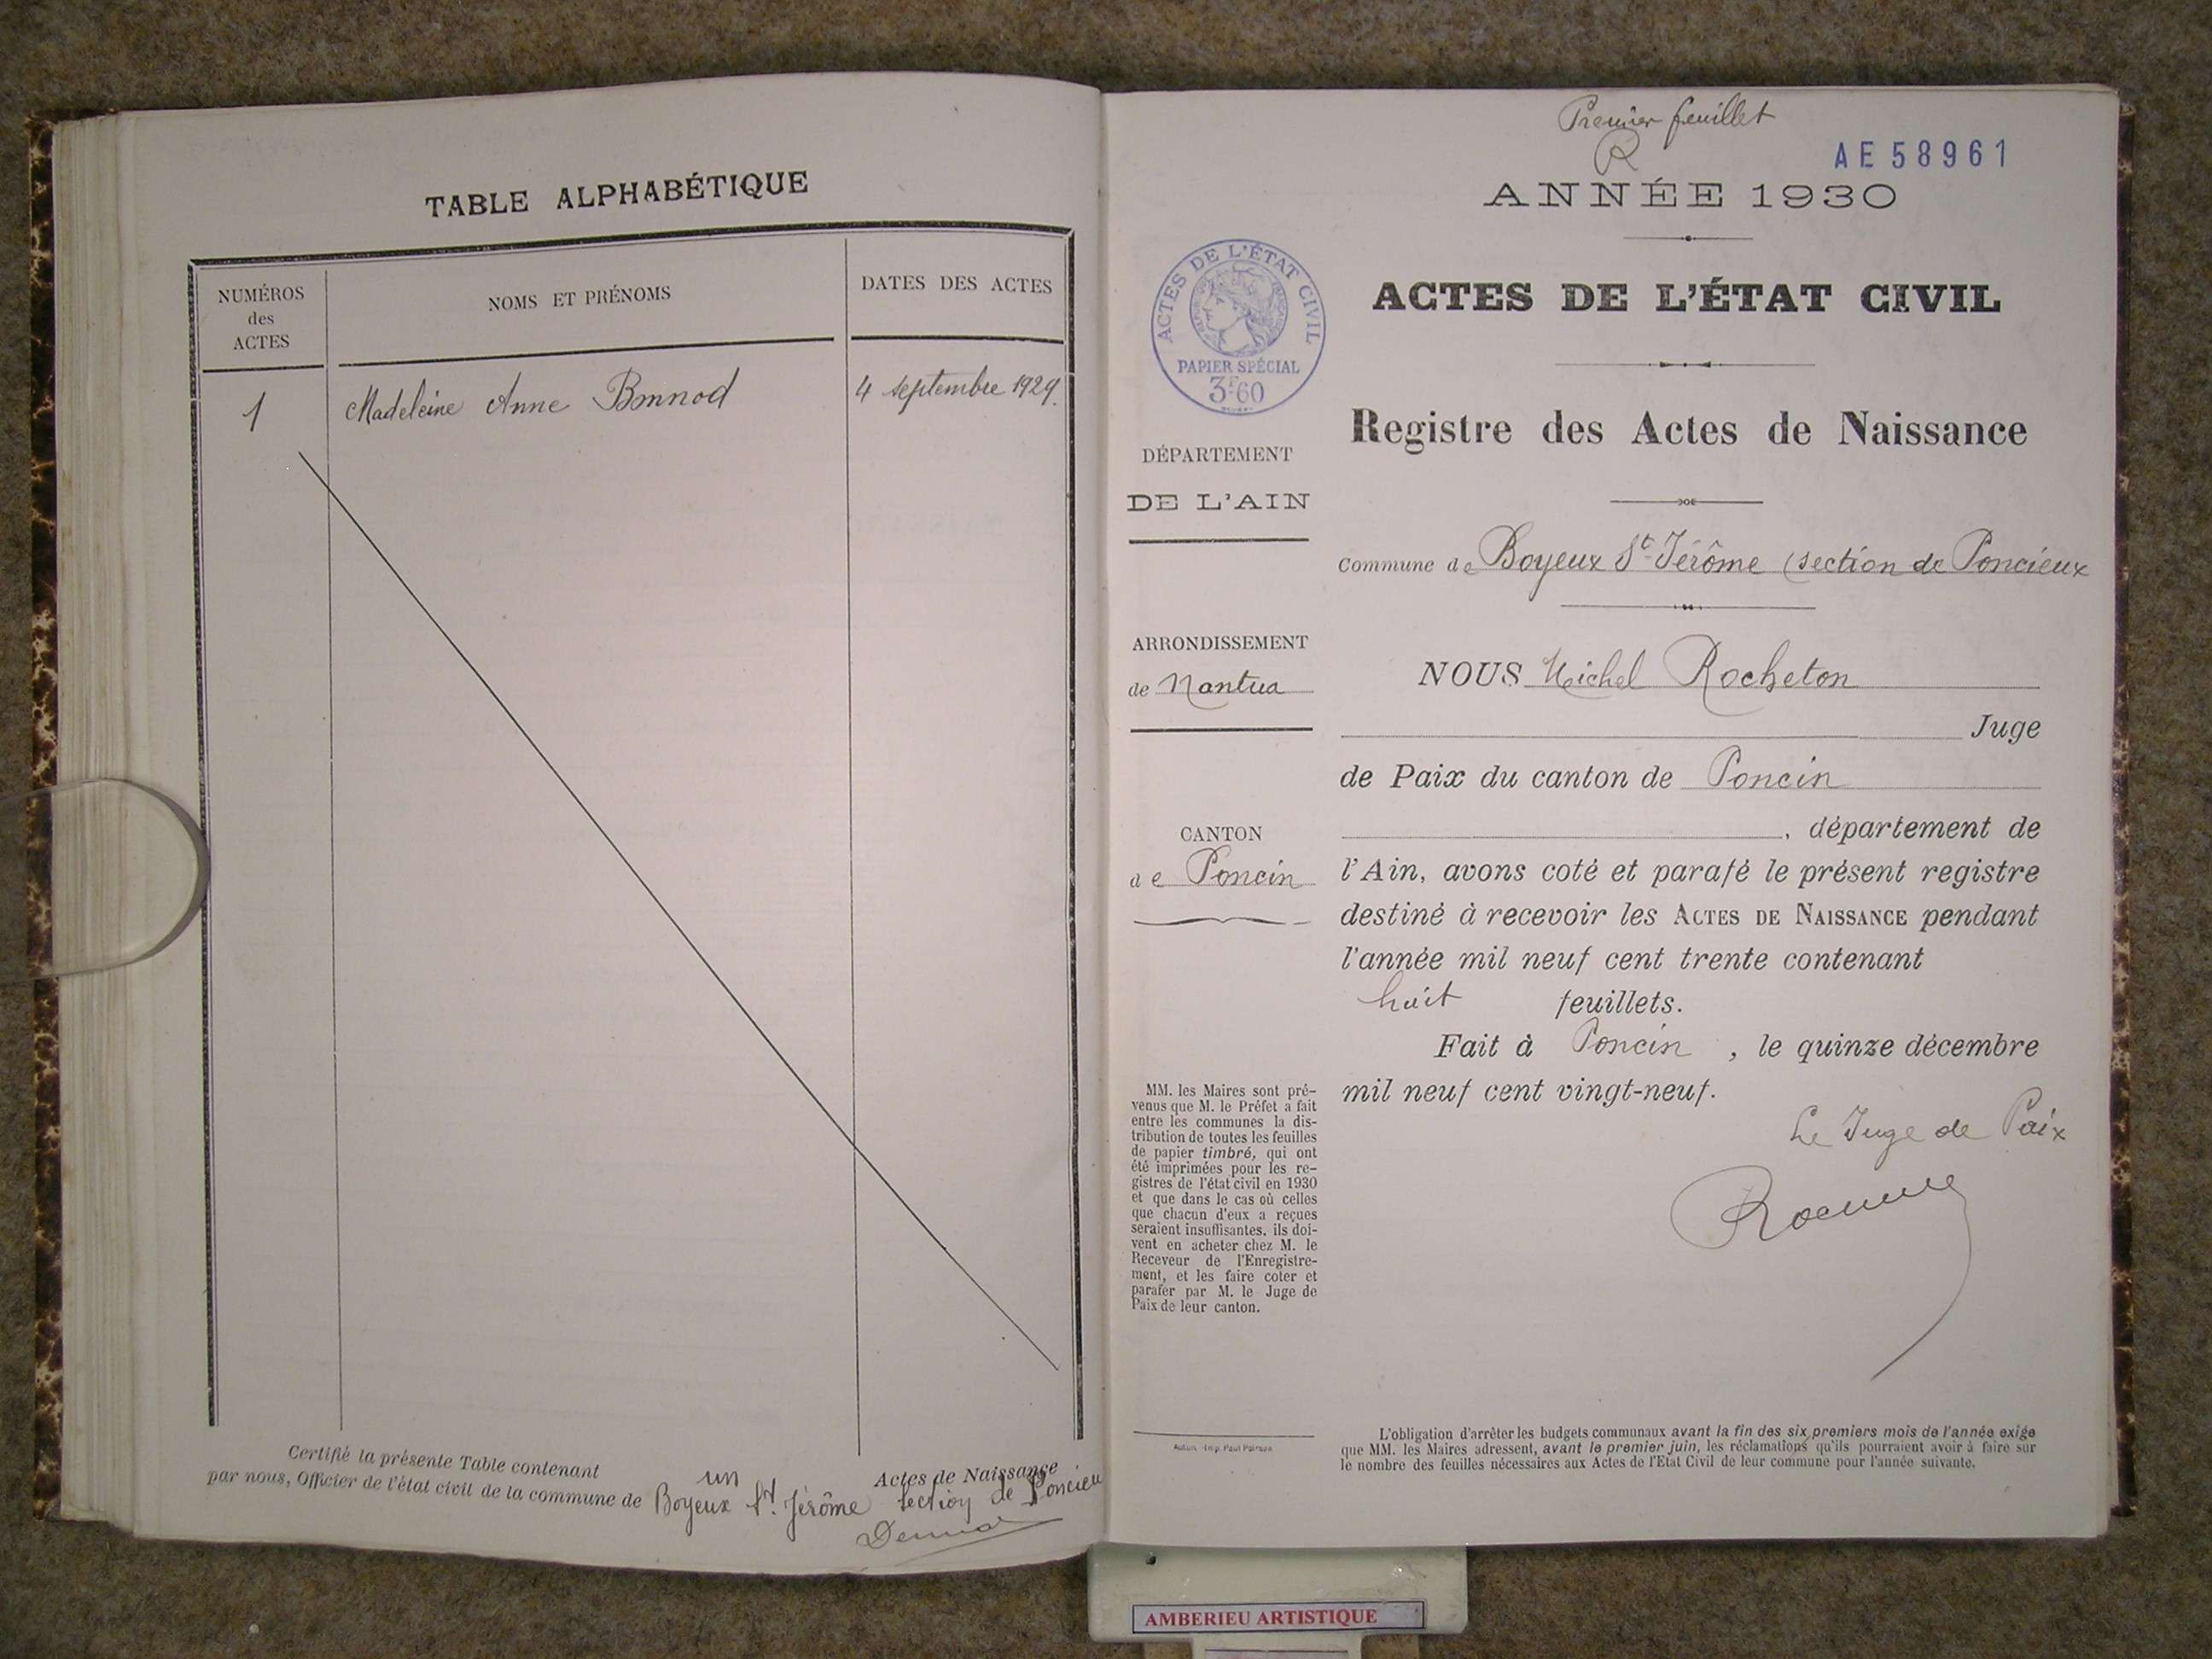 TABLE ALPHABÉTIQUE
NUMÉROS
des
ACTES
NOMS ET PRÉNOMS
DATES DES ACTES
1 Madeleine Anne Bonnod 4 septembre 1929.
Certifié la présente Table contenant un Actes de Naissance
par nous, Officier de l'état civil de la commune de Boyeux St. Jérôme section de Poncieu
Premier feuillet
R
AE 58961
ANNÉE 1930
ACTES DE L'ÉTAT CIVIL
PAPIER SPÉCIAL
3F60
ACTES DE L'ÉTAT CIVIL
Registre des Actes de Naissance
DÉPARTEMENT
DE L'AIN
Commune de Boyeux St-Jérôme (section de Poncieux
ARRONDISSEMENT
de Nantua
CANTON
de Poncin
NOUS Michel Rocheton
Juge
de Paix du canton de Poncin
, département de
l'Ain, avons coté et parafé le présent registre
destiné à recevoir les ACTES DE NAISSANCE pendant
l'année mil neuf cent trente contenant
huit feuillets.
Fait à Poncin, le quinze décembre
mil neuf cent vingt-neuf.
Le Juge de Paix
MM. les Maires sont pré-
venus que M. le Préfet a fait
entre les communes la dis-
tribution de toutes les feuilles
de papier timbré, qui ont
été imprimées pour les re-
gistres de l'état civil en 1930
et que dans le cas où celles
que chacun d'eux a reçues
seraient insuffisantes, ils doi-
vent en acheter chez M. le
Receveur de l'Enregistre-
ment, et les faire coter et
parafer par M. le Juge de
Paix de leur canton.
L'obligation d'arrêter les budgets communaux avant la fin des six premiers mois de l'année exige
que MM. les Maires adressent, avant le premier juin, les réclamations qu'ils pourraient avoir à faire sur
le nombre des feuilles nécessaires aux Actes de l'Etat Civil de leur commune pour l'année suivante.
AMBERIEU ARTISTIQUE